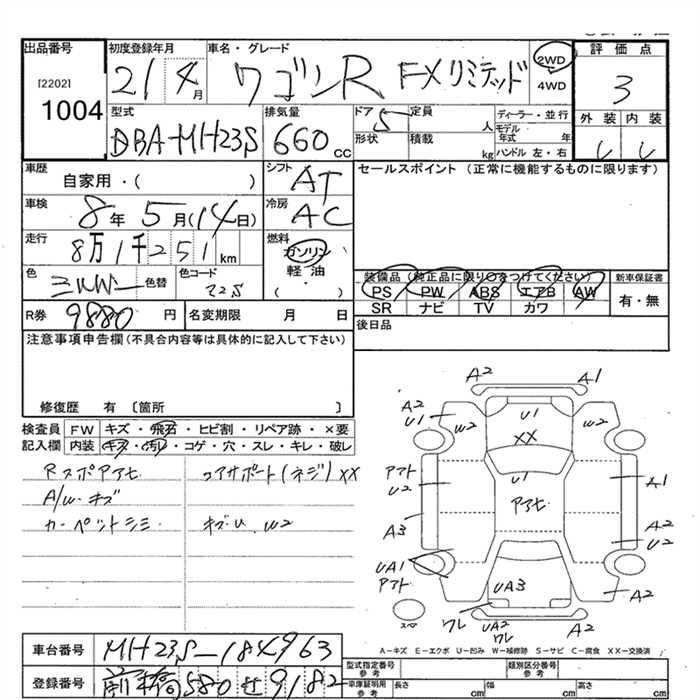 出品番号 初度登録年月 車名・グレード 評価点
[2202] 21年 4月 ワゴンR FXリミテッド 2WD 4WD 3
1004
型式 排気量 ドア 5 定員 人 ディーラー・並行 外装 内装
DBA-MH23S 660 CC 形状 積載 kg モデル年式 年 ハンドル 左・右
車歴 シフト セールスポイント (正常に機能するものに限ります)
自家用・( ) AT
車検 冷房
8年 5月(14日) AC
走行 燃料
8万1千251km ガソリン
色 シルバー 色替 色コード 22S 軽油・( )
装備品(純正品に限り○をつけてください) 新車保証書
PS PW ABS エアB AW 有・無
SR ナビ TV カワ
R券 9880円 名変期限 月 日 後日品
注意事項申告欄(不具合内容等は具体的に記入して下さい)
修復歴 有〔箇所 〕
検査員 FW キズ・飛石・ヒビ割・リペア跡・×要
記入欄 内装 キズ・汚れ・コゲ・穴・スレ・キレ・破レ
Rスポアアセ コアサポート(ネジ)XX
A/W キズ
カーペットシミ キズU W2
A2 A1
A2 U1 W2 U1 W2
XX
アアト U2 U1 アアセ A1
A3 A2 U2
UA1 アアト
UA3 A2
スペア ワレ UA2 ワレ A2
A-キズ E-エクボ U-凹み W-補修跡 S-サビ C-腐食 XX-交換済
車台番号 MH23S-184963
型式指定番号 参考 類別区分番号 参考
登録番号 前橋 580 せ 9182
車庫証明用 参考 長さ cm 幅 cm 高さ cm